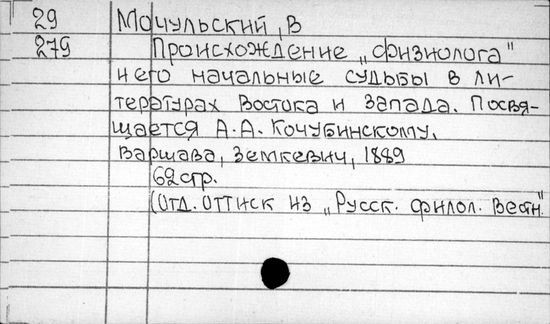 29 Мочульский, В
279 Происхождение „физиолога"
и его начальные судьбы в ли-
тературах Востока и Запада. Посвя-
щается А.А. Кочубинскому.
Варшава, Земкевич, 1889
62 стр.
(Отд. оттиск из „Русск. филол. Вестн."